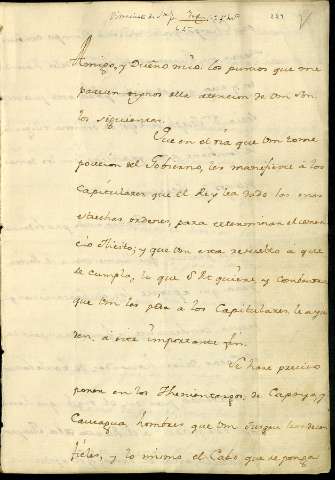 221
Amigo, y Dueño mio: los puntos que me
parecen dignos de la atencion de Vm son
los siguientes.
Que en el dia que Vm tome
posecion del Govierno, les manifieste à los
Capitulares que el Rey lea dado las mas
estrechas ordenes, para exterminar el comer
cio Ilicito; y que Vm esta resuelto à que
se cumpla, lo que S. M. quiere, y
que Vm les pide à los Capitulares le ayu
den, à este importante fin.
Se hace preciso
poner en los Thenientazgos, de Capaya, y
Caucagua, hombres que Vm Jusgue
fieles, y lo mismo el Cabo que se ponga